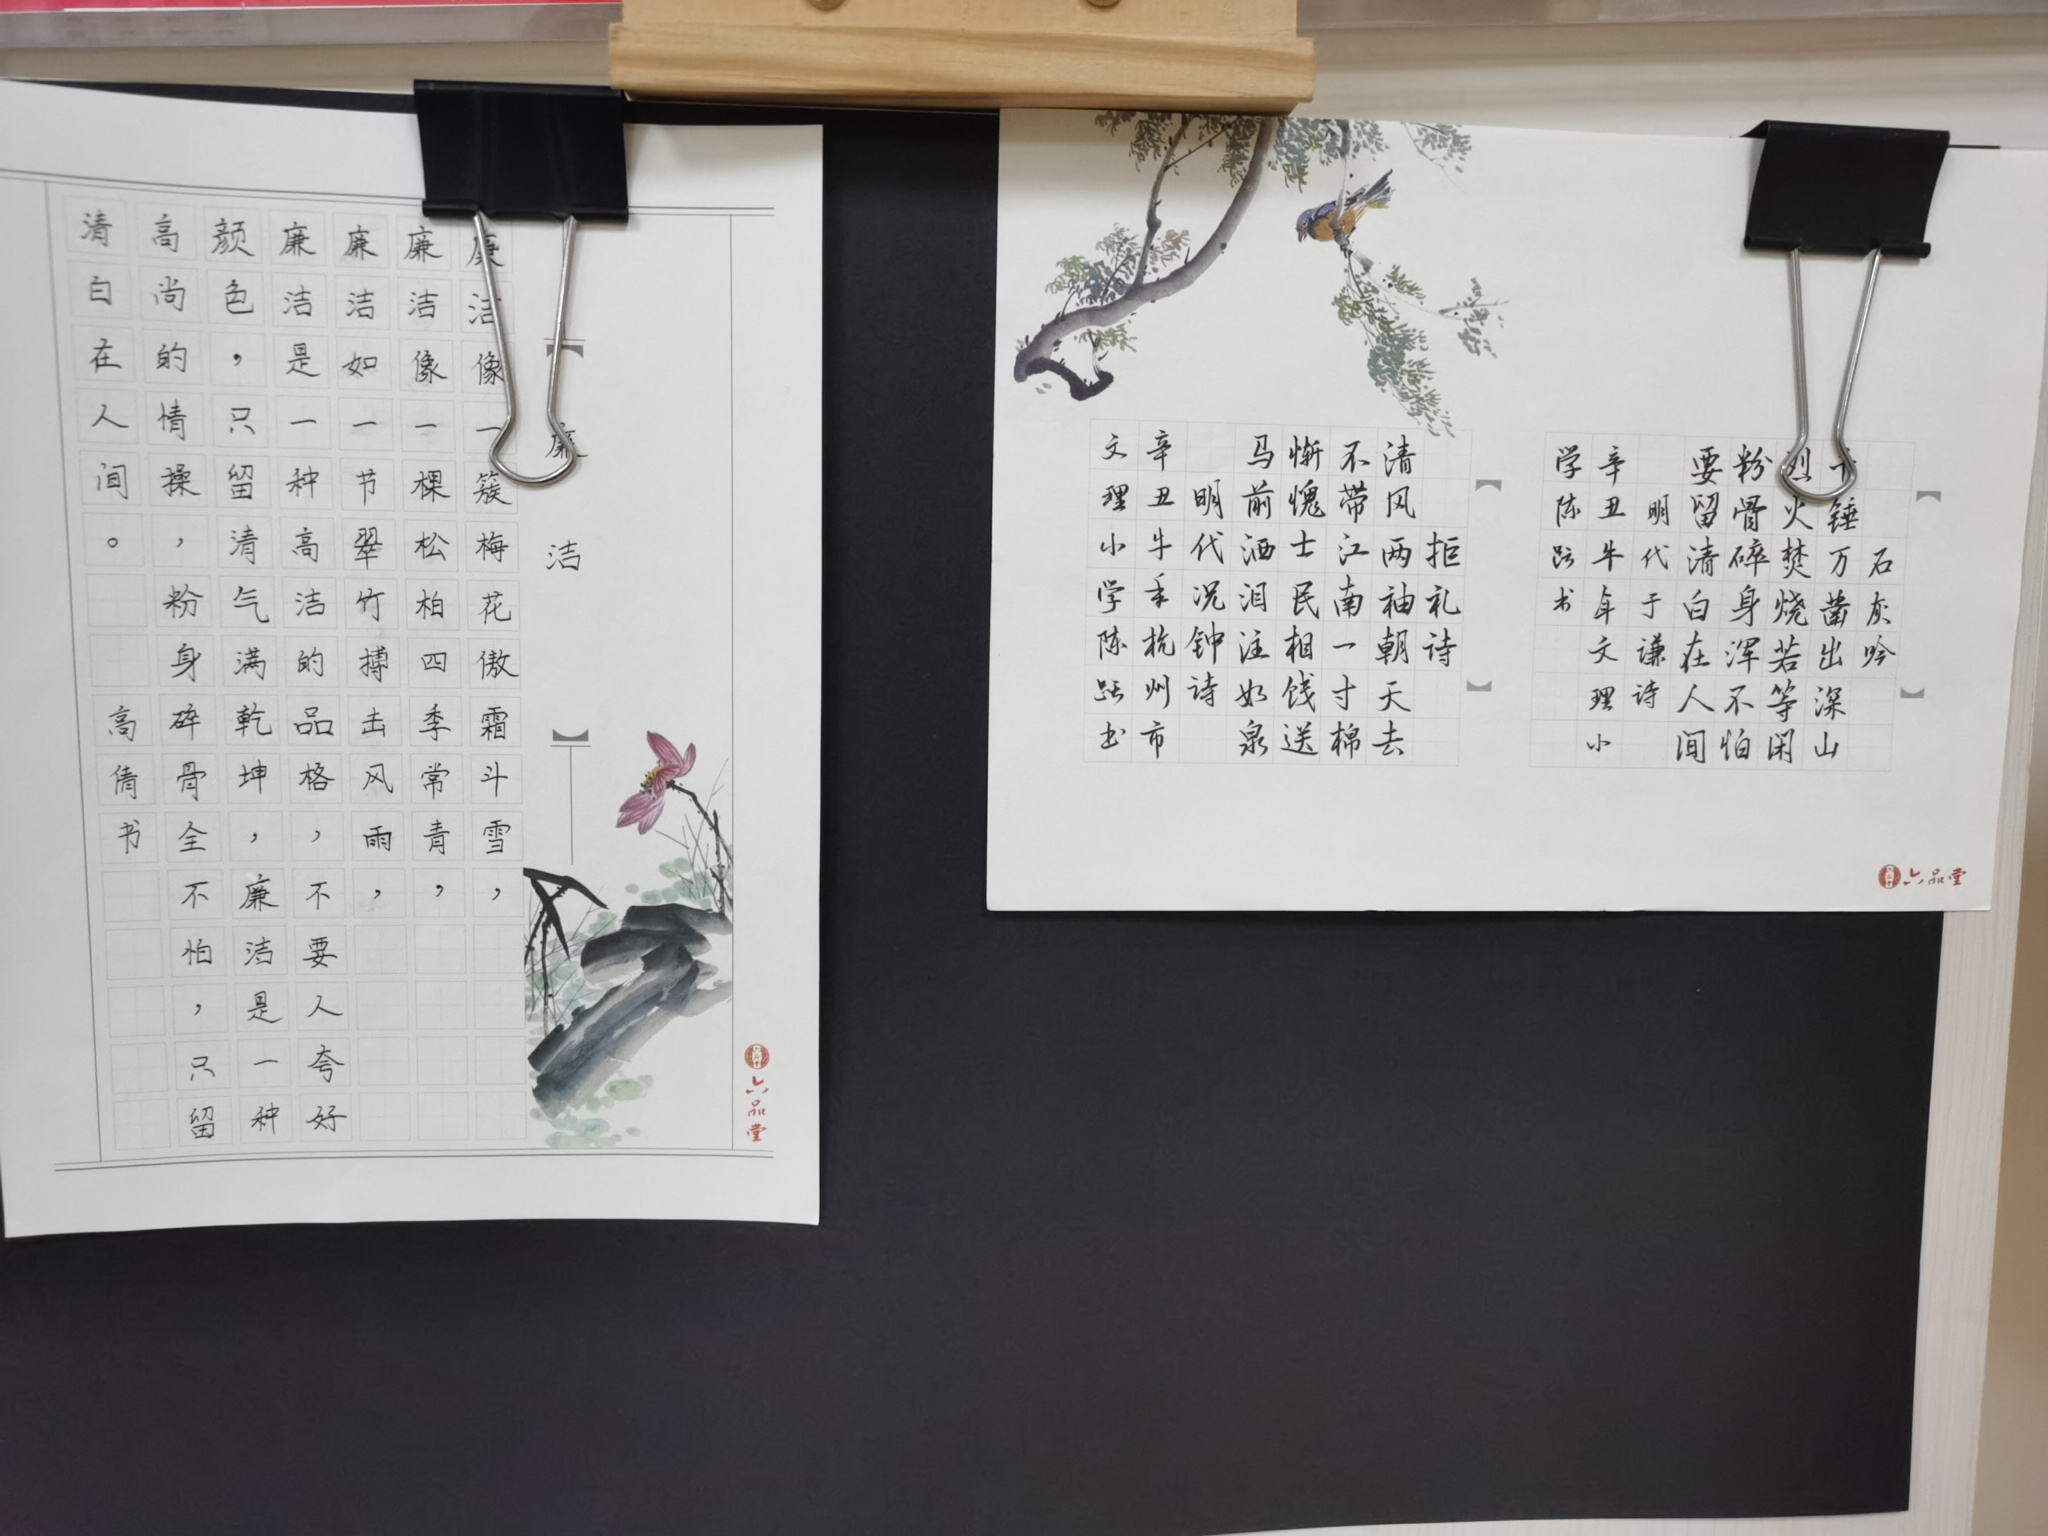 廉洁
廉洁像一簇梅花傲霜斗雪，
廉洁像一棵松柏四季常青，
廉洁如一节翠竹搏击风雨，
廉洁是一种高洁的品格，不要人夸好
颜色，只留清气满乾坤，廉洁是一种
高尚的情操，粉身碎骨全不怕，只留
清白在人间。
高倩书
六品堂
石灰吟
千锤万凿出深山
烈火焚烧若等闲
粉骨碎身浑不怕
要留清白在人间
明代于谦诗
辛丑牛年文理小
学陈跃书
拒礼诗
清风两袖朝天去
不带江南一寸棉
惭愧士民相饯送
马前洒泪注如泉
明代况钟诗
辛丑牛年杭州市
文理小学陈跃书
六品堂